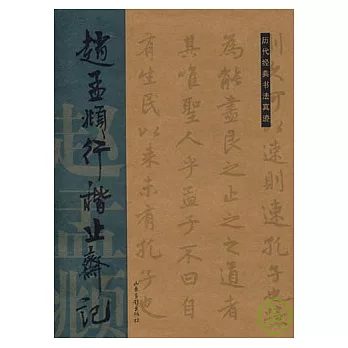 趙孟頫行楷止齋記
历代经典书法真迹
则速孔子也
為能盡艮之止之之道者
其唯聖人乎孟子不曰自
有生民以来未有孔子也
山东画报出版社